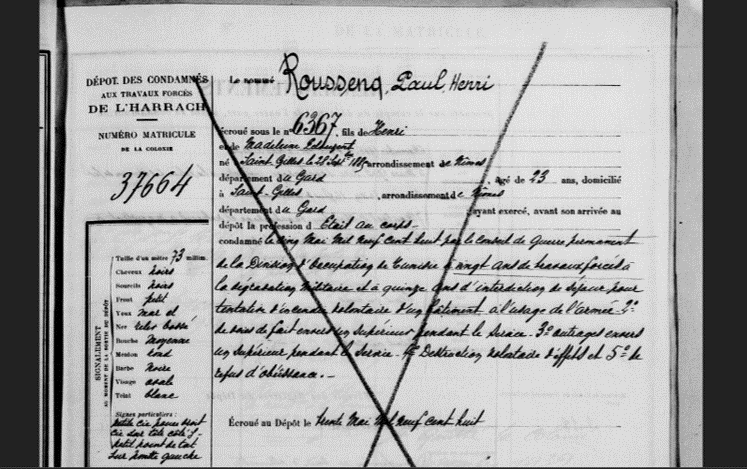 DÉPOT DES CONDAMNÉS
AUX TRAVAUX FORCÉS
DE L'HARRACH
NUMÉRO MATRICULE
DE LA COLONIE
37664
Le nommé Roussenq, Paul, Henri
écroué sous le nº 6367, fils de Henri
et de Madeleine
né à Saint-Gilles le 28 Sept. 1885 arrondissement de Nimes
département du Gard, âgé de 23 ans, domicilié
à Saint-Gilles, arrondissement de Nimes
département du Gard ayant exercé, avant son arrivée au
dépôt la profession d' Etait au corps
condamné le cinq Mai Mil neuf Cent huit par le conseil de guerre permanent
de la Division d'Occupation de Tunisie à vingt ans de travaux forcés à
la dégradation militaire et à quinze ans d'interdiction de séjour pour
tentative d'incendie volontaire d'un bâtiment à l'usage de l'armée. 2º
de voies de fait envers un Supérieur pendant le Service. 3º outrages envers
un Supérieur pendant le Service. 4º Destruction volontaire d'effets et 5º de
refus d'obéissance.
Écroué au Dépôt le trente Mai Mil neuf Cent huit
SIGNALEMENT
AU MOMENT DE LA SORTIE DU DÉPÔT
Taille d'un mètre 73 millim.
Cheveux noirs
Sourcils noirs
Front petit
Yeux mar
Nez
Bouche moyenne
Menton rond
Barbe noire
Visage ovale
Teint blanc
Signes particuliers :
petite cic
cic sur
petit point de
sur gauche